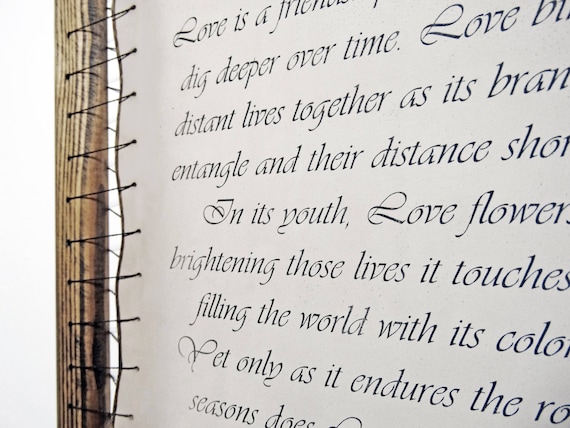 Love is a
dig deeper over time. Love
distant lives together as its
entangle and their distance
In its youth, Love flowers
brightening those lives it touches
filling the world with its
Yet only as it endures the
seasons does